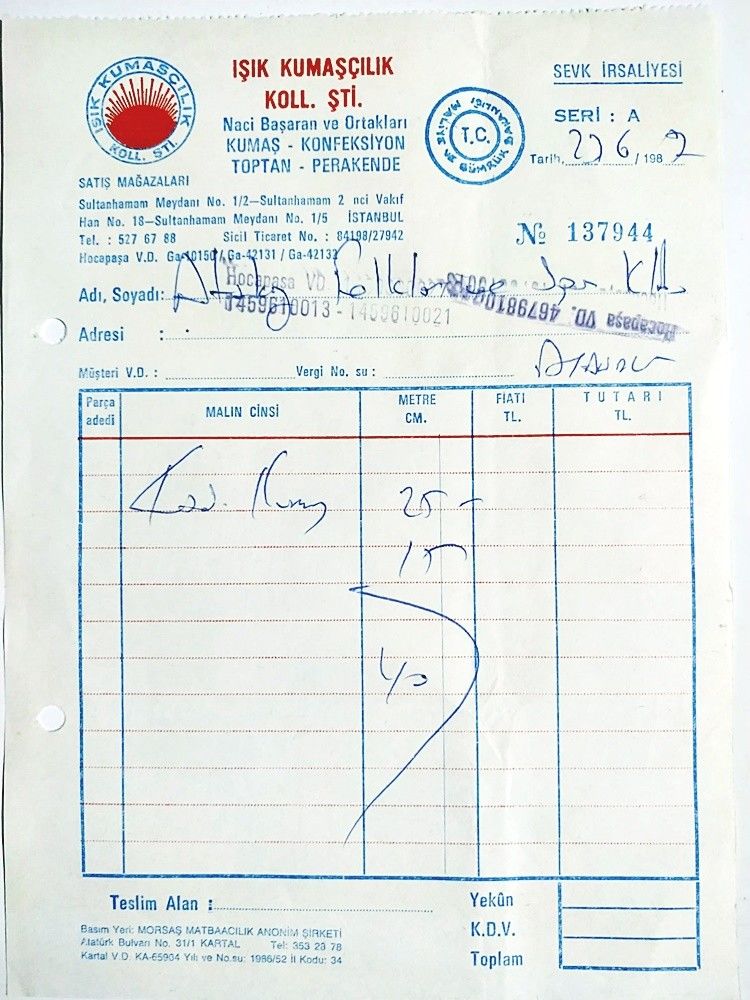 IŞIK KUMAŞÇILIK
KOLL. ŞTİ.
IŞIK KUMAŞÇILIK
KOLL. ŞTİ.
Naci Başaran ve Ortakları
KUMAŞ - KONFEKSİYON
TOPTAN - PERAKENDE
T.C.
MALİYE VE GÜMRÜK BAKANLIĞI
SEVK İRSALİYESİ
SERİ : A
Tarih, 6 / 198
SATIŞ MAĞAZALARI
Sultanhamam Meydanı No. 1/2—Sultanhamam 2 nci Vakıf
Han No. 18—Sultanhamam Meydanı No. 1/5 İSTANBUL
Tel. : 527 67 88 Sicil Ticaret No. : 84198/27942
Hocapaşa V.D. Ga-10150 / Ga-42131 / Ga-42132
№ 137944
Hocapaşa VD
Adı, Soyadı:
1459610013 - 1459610021
Hocapaşa VD.
Adresi :
Müşteri V.D. : Vergi No. su :
Parça adedi MALIN CİNSİ METRE CM. FIATI TL. TUTARI TL.
25 -
15
40
Teslim Alan :
Yekûn
K.D.V.
Toplam
Basım Yeri: MORSAŞ MATBAACILIK ANONİM ŞİRKETİ
Atatürk Bulvarı No. 31/1 KARTAL Tel: 353 28 78
Kartal V.D. KA-65904 Yılı ve No.su: 1986/52 İl Kodu: 34